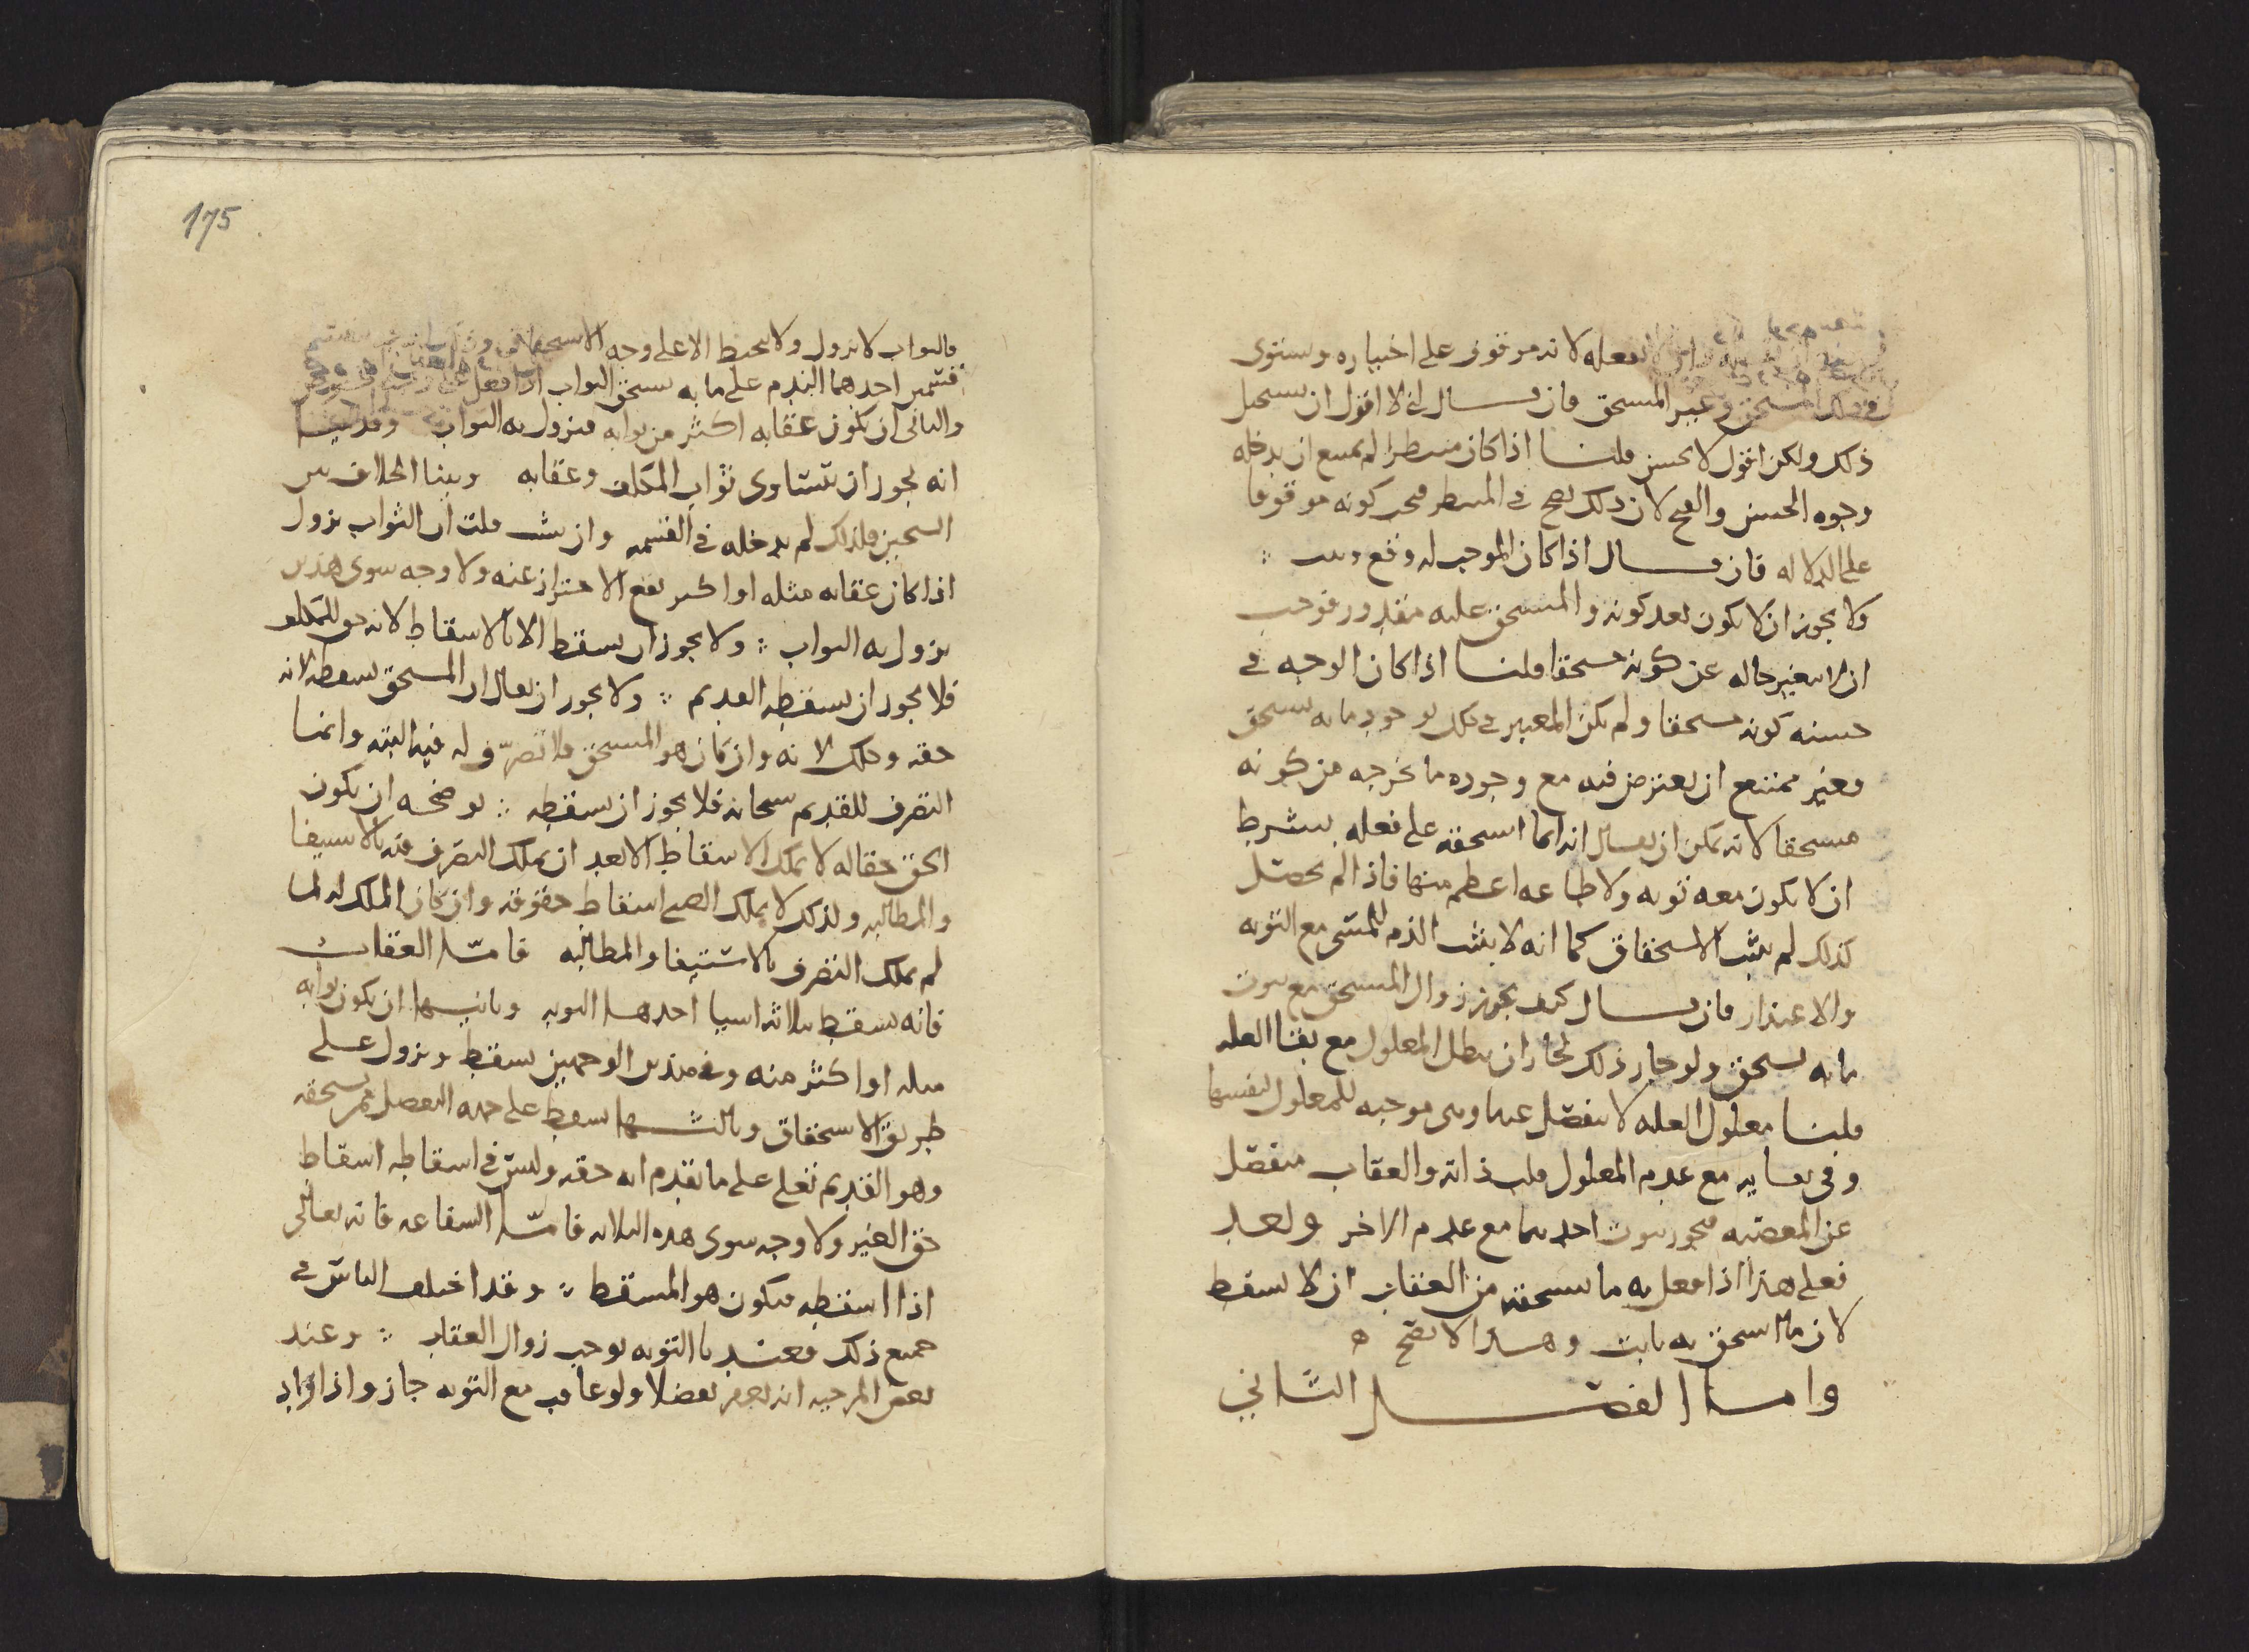 لا يفعله لانه موقوف على اختياره ويستوي
في ذلك المستحق وغير المستحق فان قال اني لا اقول ان يستحيل
ذلك ولكن اقول لا يحسن قلنا اذا كان منتظرا لم يمتنع ان يدخله
وجوه الحسن والقبح لان ذلك يصح في المنتظر فيجب كونه موقوفا
على الدلاله فان قال اذا كان الموجب له وقع وثبت
ولا يجوز ان لا يكون بعد كونه والمستحق عليه مقدور فوجب
ان لا يتغير حاله عن كونه مستحقا قلنا اذا كان الوجه في
حسنه كونه مستحقا ولم يكن المعتبر في ذلك بوجود ما به يستحق
وغير ممتنع ان يعترض فيه مع وجوده ما يخرجه من كونه
مستحقا لانه يمكن ان يقال انه انما استحقه على فعله بشرط
ان لا يكون معه توبه ولا طاعه اعظم منها فاذا لم يحصل
كذلك لم يثبت الاستحقاق كما انه لا يثبت الذم للمسي مع التوبه
والاعتذار فان قال كيف يجوز زوال المستحق مع ثبوت
ما به يستحق ولو جاز ذلك لجاز ان يبطل المعلول مع بقا العله
قلنا معلول العله لا ينفصل عنها وهي موجبه للمعلول لنفسها
وفي بقايه مع عدم المعلول قلب ذاته والعقاب منفصل
عن المعصيه فيجوز ثبوت احدهما مع عدم الاخر وبعد
فعلى هذا اذا فعل به ما يستحقه من العقاب ان لا يسقط
لان ما استحق به ثابت وهذا لا يصح
واما الفصل الثاني
175
فالثواب لا يزول ولا يحبط الا على وجه الاستحقاق
قسمين احدهما الندم على ما به يستحق الثواب اذا فعل
والثاني ان يكون عقابه اكثر من ثوابه فيزول به الثواب وقد بينا
انه يجوز ان يتساوى ثواب المكلف وعقابه وبينا الخلاف بين
الشيخين فلذلك لم ندخله في القسمه وان شيت قلت ان الثواب يزول
اذا كان عقابه مثله او اكثر يقع الاحتراز عنه ولا وجه سوى هذين
يزول به الثواب ولا يجوز ان يسقط الا بالاسقاط لانه حق للمكلف
فلا يجوز ان يسقطه القديم ولا يجوز ان يقال ان المستحق يسقطه لانه
حقه وملك لانه وان كان هو المستحق فلا تصرف له فيه البته وانما
التصرف للقديم سبحانه فلا يجوز ان يسقطه يوضحه ان يكون
الحق حقا له لا يملك الاسقاط الا بعد ان يملك التصرف فيه بالاستيفا
والمطالبه ولذلك لا يملك الصبي اسقاط حقوقه وان كان الملك له لما
لم يملك التصرف بالاستيفا والمطالبه فاما العقاب
فانه يسقط بثلاثه اشيا احدها التوبه وثانيها ان يكون ثوابه
مثله او اكثر منه وفي هذين الوجهين يسقط ويزول على
طريق الاستحقاق وثالثها يسقط على جهه التفضل ممن يستحقه
وهو القديم تعلى على ما تقدم انه حقه وليس في اسقاطه اسقاط
حق الغير ولا وجه سوى هذه الثلاثه فاما الشفاعه فانه تعالى
اذا اسقطه فيكون هو المسقط وقد اختلف الناس في
جميع ذلك فعندنا التوبه توجب زوال العقاب وعند
بعض المرجيه انه يغفر تفضلا ولو عاقب مع التوبه جاز واذا زاد